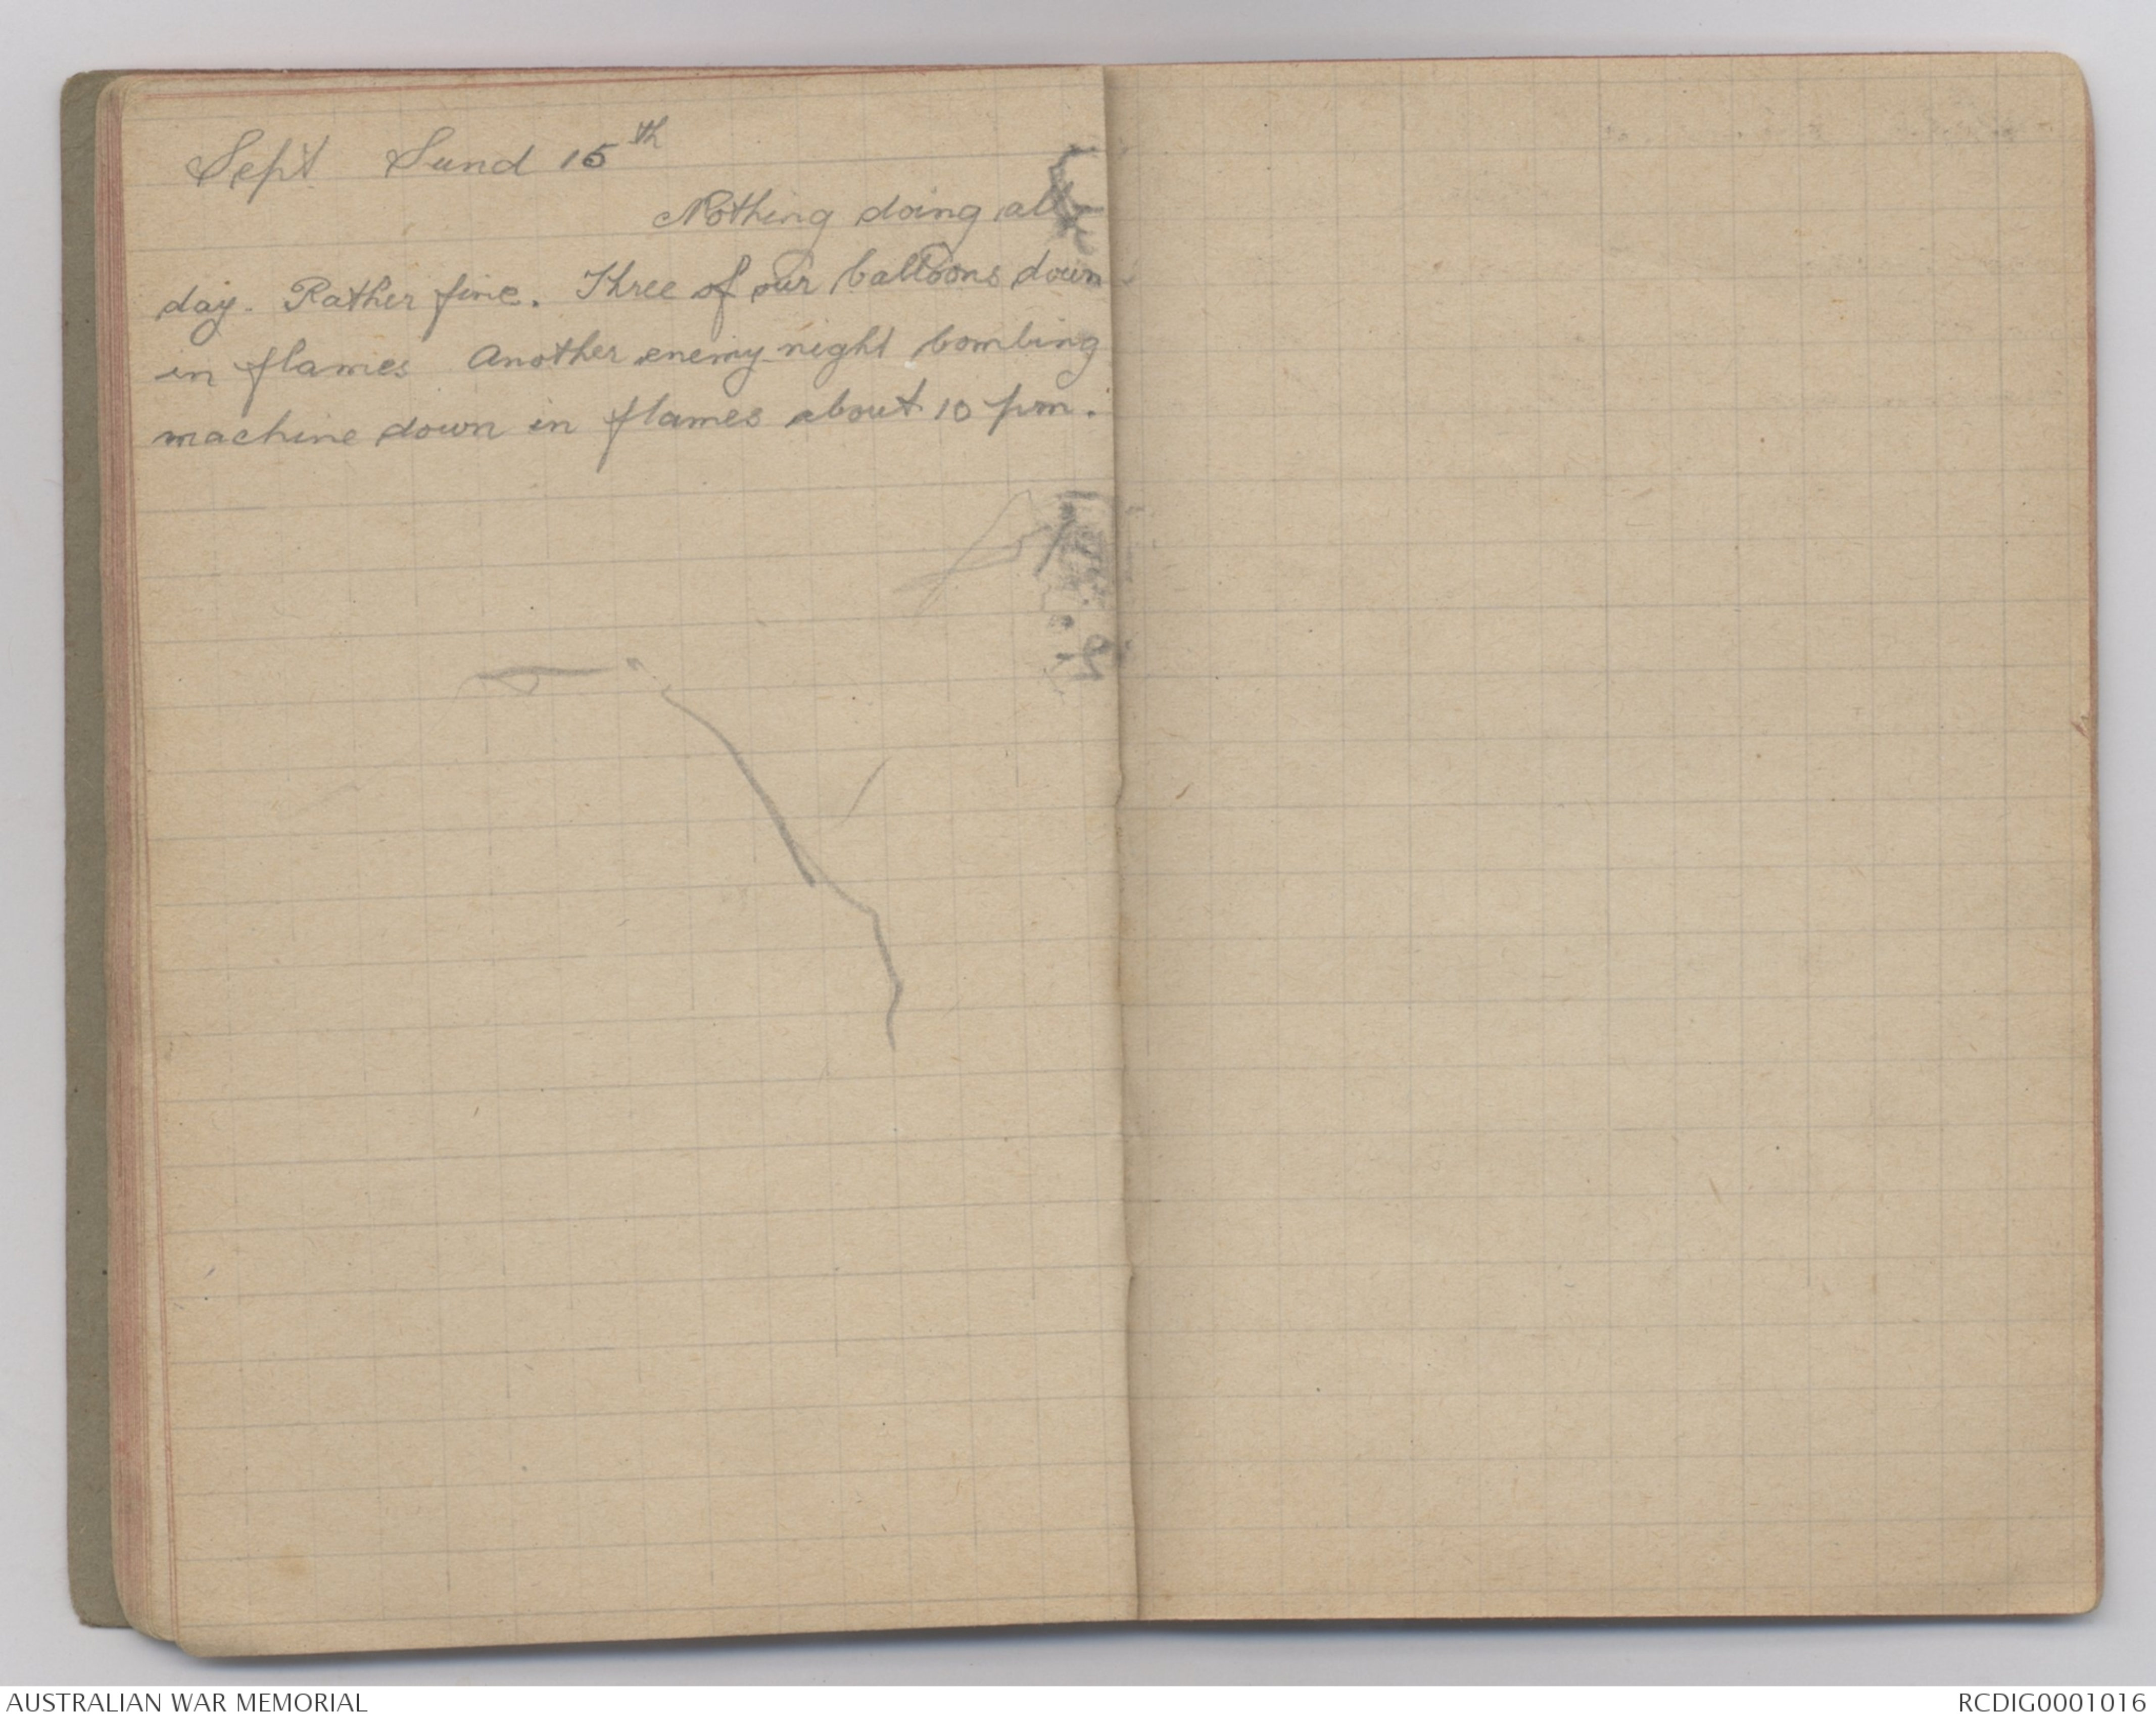 Sept Sund 15th
Nothing doing all
day. Rather fine. Three of our balloons down
in flames Another enemy night bombing
machine down in flames about 10 pm.
AUSTRALIAN WAR MEMORIAL
RCDIG0001016